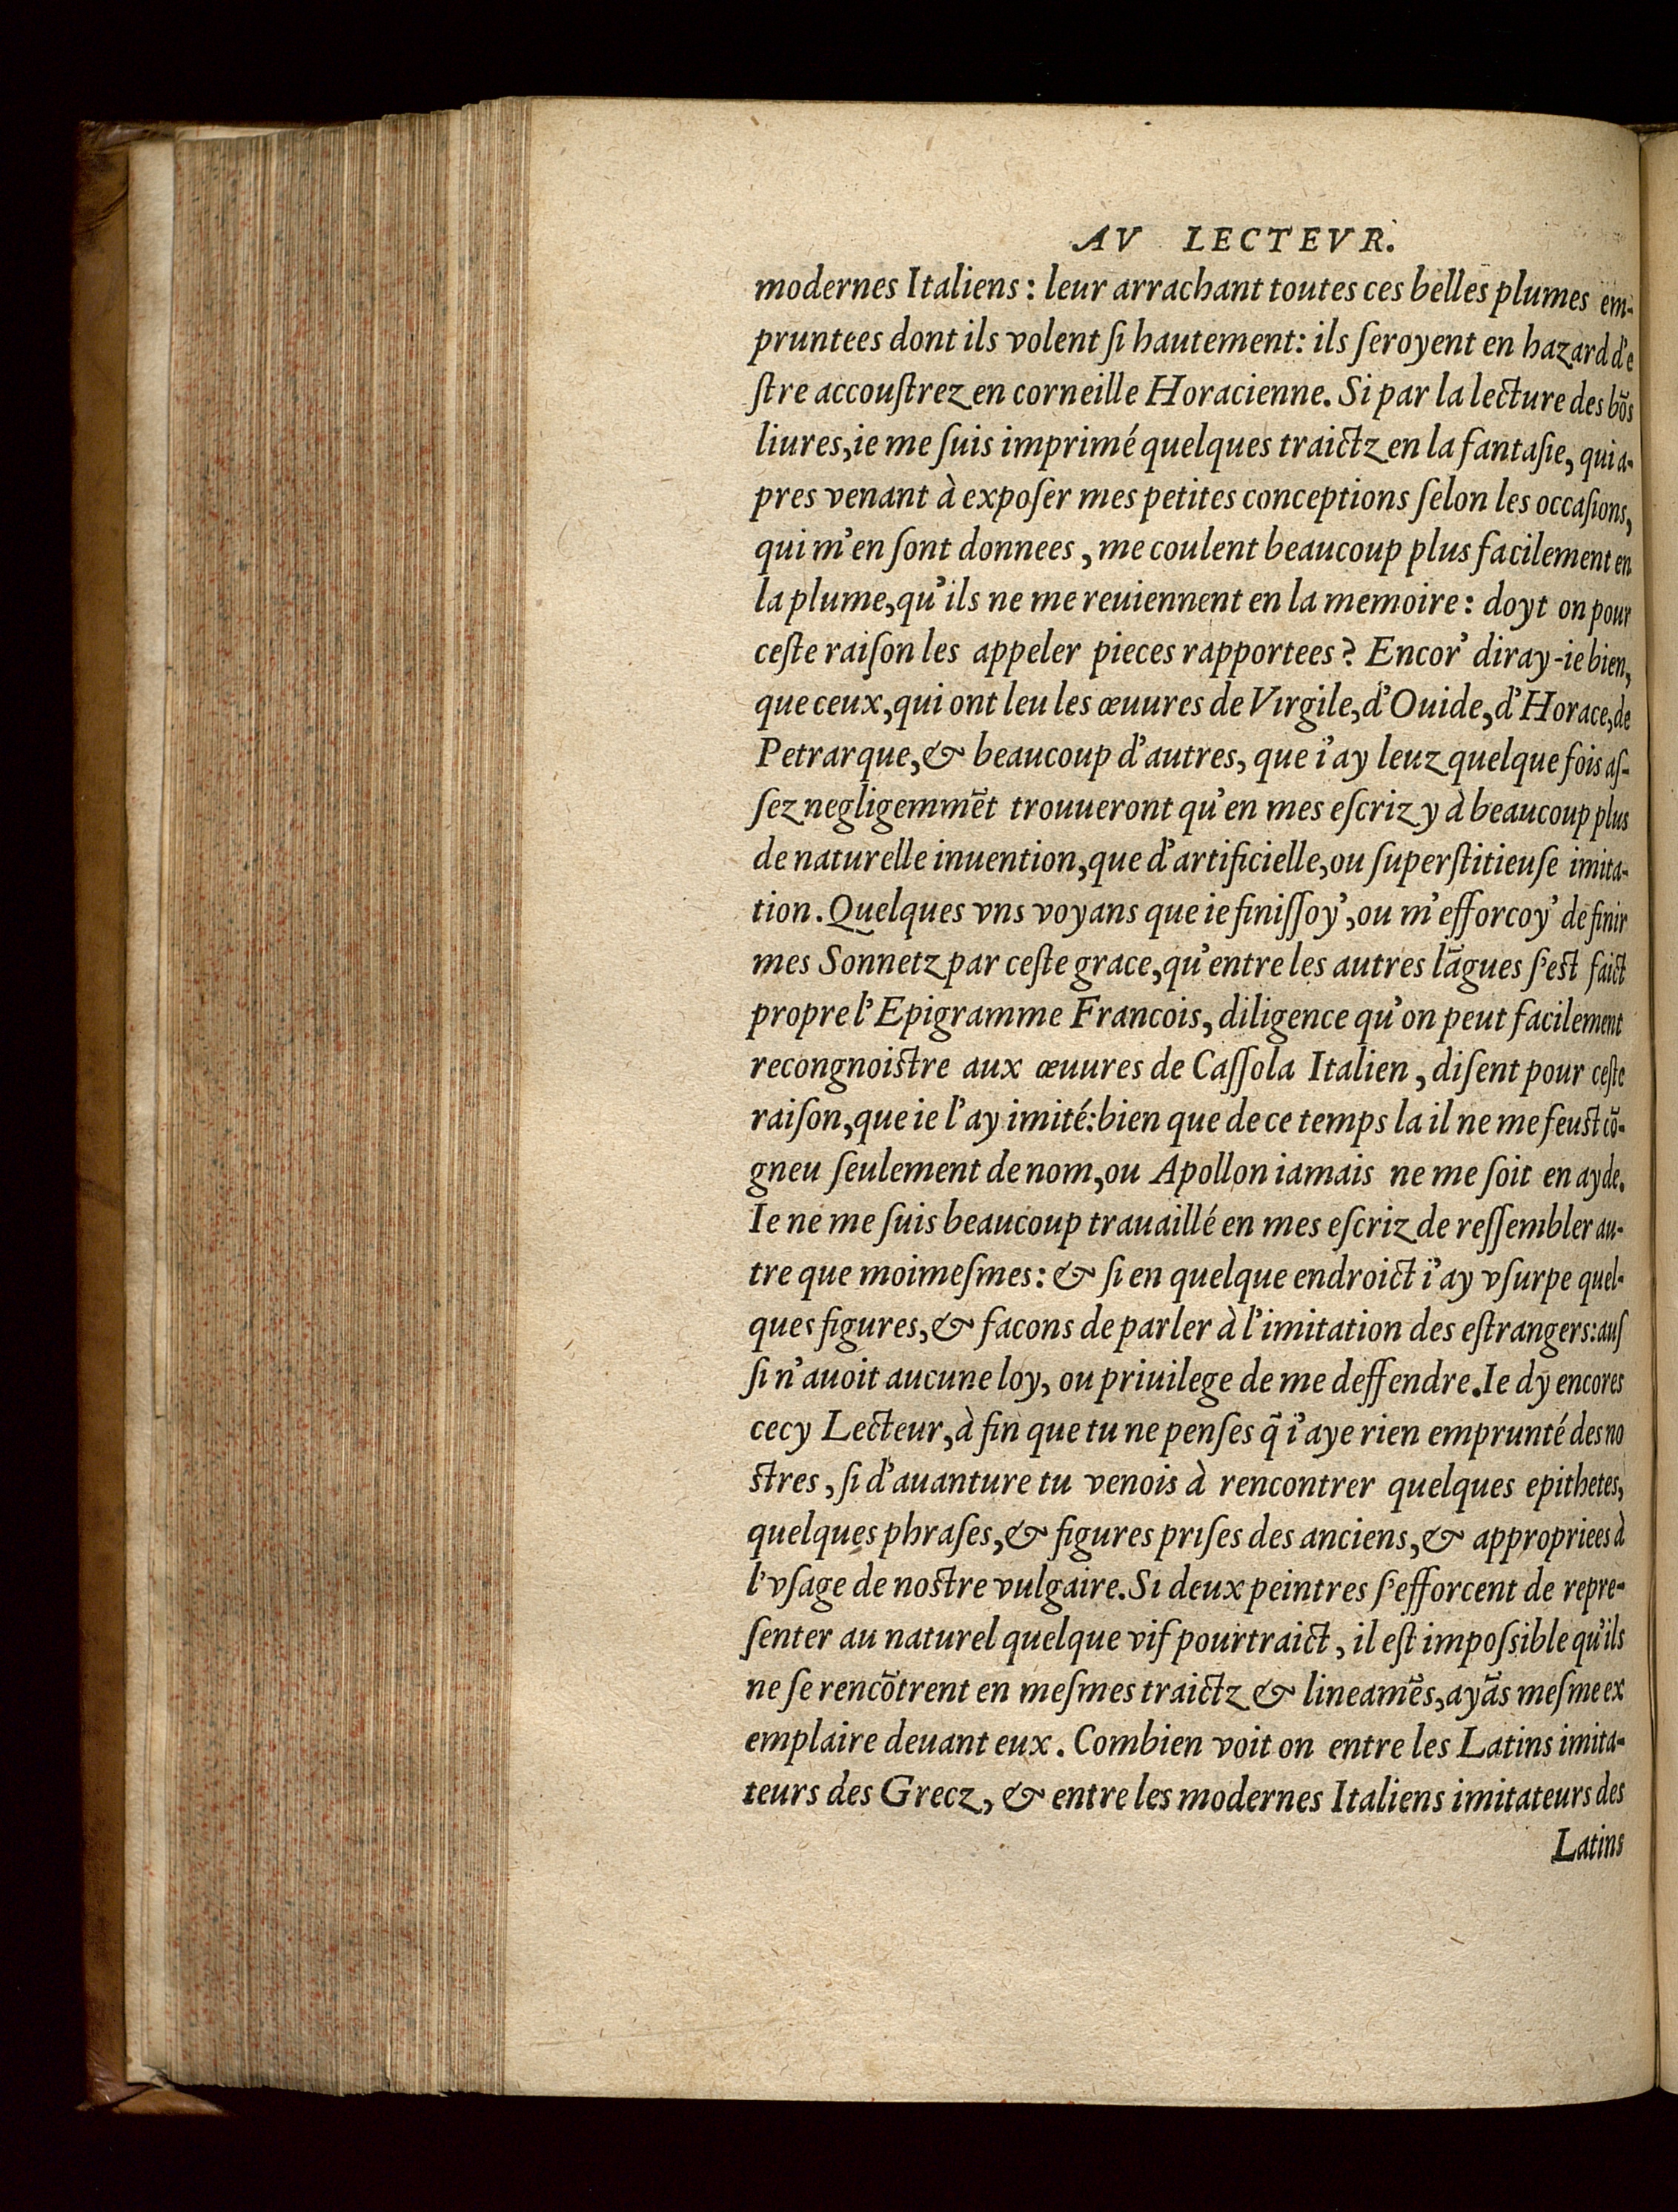 AV LECTEVR.
modernes Italiens : leur arrachant toutes ces belles plumes em-
pruntees dont ils volent ſi hautement: ils ſeroyent en hazard d'e
ſtre accouſtrez en corneille Horacienne. Si par la lecture des bõs
liures, ie me ſuis imprimé quelques traictz en la fantaſie, qui a-
pres venant à expoſer mes petites conceptions ſelon les occaſions,
qui m'en ſont donnees, me coulent beaucoup plus facilement en
la plume, qu'ils ne me reuiennent en la memoire : doyt on pour
ceſte raiſon les appeler pieces rapportees ? Encor' diray-ie bien,
que ceux, qui ont leu les œuures de Virgile, d'Ouide, d'Horace, de
Petrarque, & beaucoup d'autres, que i'ay leuz quelque fois aſ-
ſez negligemmẽt trouueront qu'en mes eſcriz y à beaucoup plus
de naturelle inuention, que d'artificielle, ou ſuperſtitieuſe imita-
tion. Quelques vns voyans que ie finiſſoy', ou m'efforcoy' de finir
mes Sonnetz par ceſte grace, qu'entre les autres lãgues ſ'est faict
propre l'Epigramme Francois, diligence qu'on peut facilement
recongnoistre aux œuures de Caſſola Italien, diſent pour ceſte
raiſon, que ie l'ay imité: bien que de ce temps la il ne me feust cõ-
gneu ſeulement de nom, ou Apollon iamais ne me ſoit en ayde.
Ie ne me ſuis beaucoup trauaillé en mes eſcriz de reſſembler au-
tre que moimeſmes: & ſi en quelque endroict i'ay vſurpe quel-
ques figures, & facons de parler à l'imitation des eſtrangers: auſ
ſi n'auoit aucune loy, ou priuilege de me deffendre. Ie dy encores
cecy Lecteur, à fin que tu ne penſes q̃ i'aye rien emprunté des no
stres, ſi d'auanture tu venois à rencontrer quelques epithetes,
quelques phraſes, & figures priſes des anciens, & appropriees à
l'vſage de nostre vulgaire. Si deux peintres ſ'efforcent de repre-
ſenter au naturel quelque vif pourtraict, il eſt impoſsible qu'ils
ne ſe rencõtrent en meſmes traictz & lineamẽs, ayãs meſme ex
emplaire deuant eux. Combien voit on entre les Latins imita-
teurs des Grecz, & entre les modernes Italiens imitateurs des
Latins